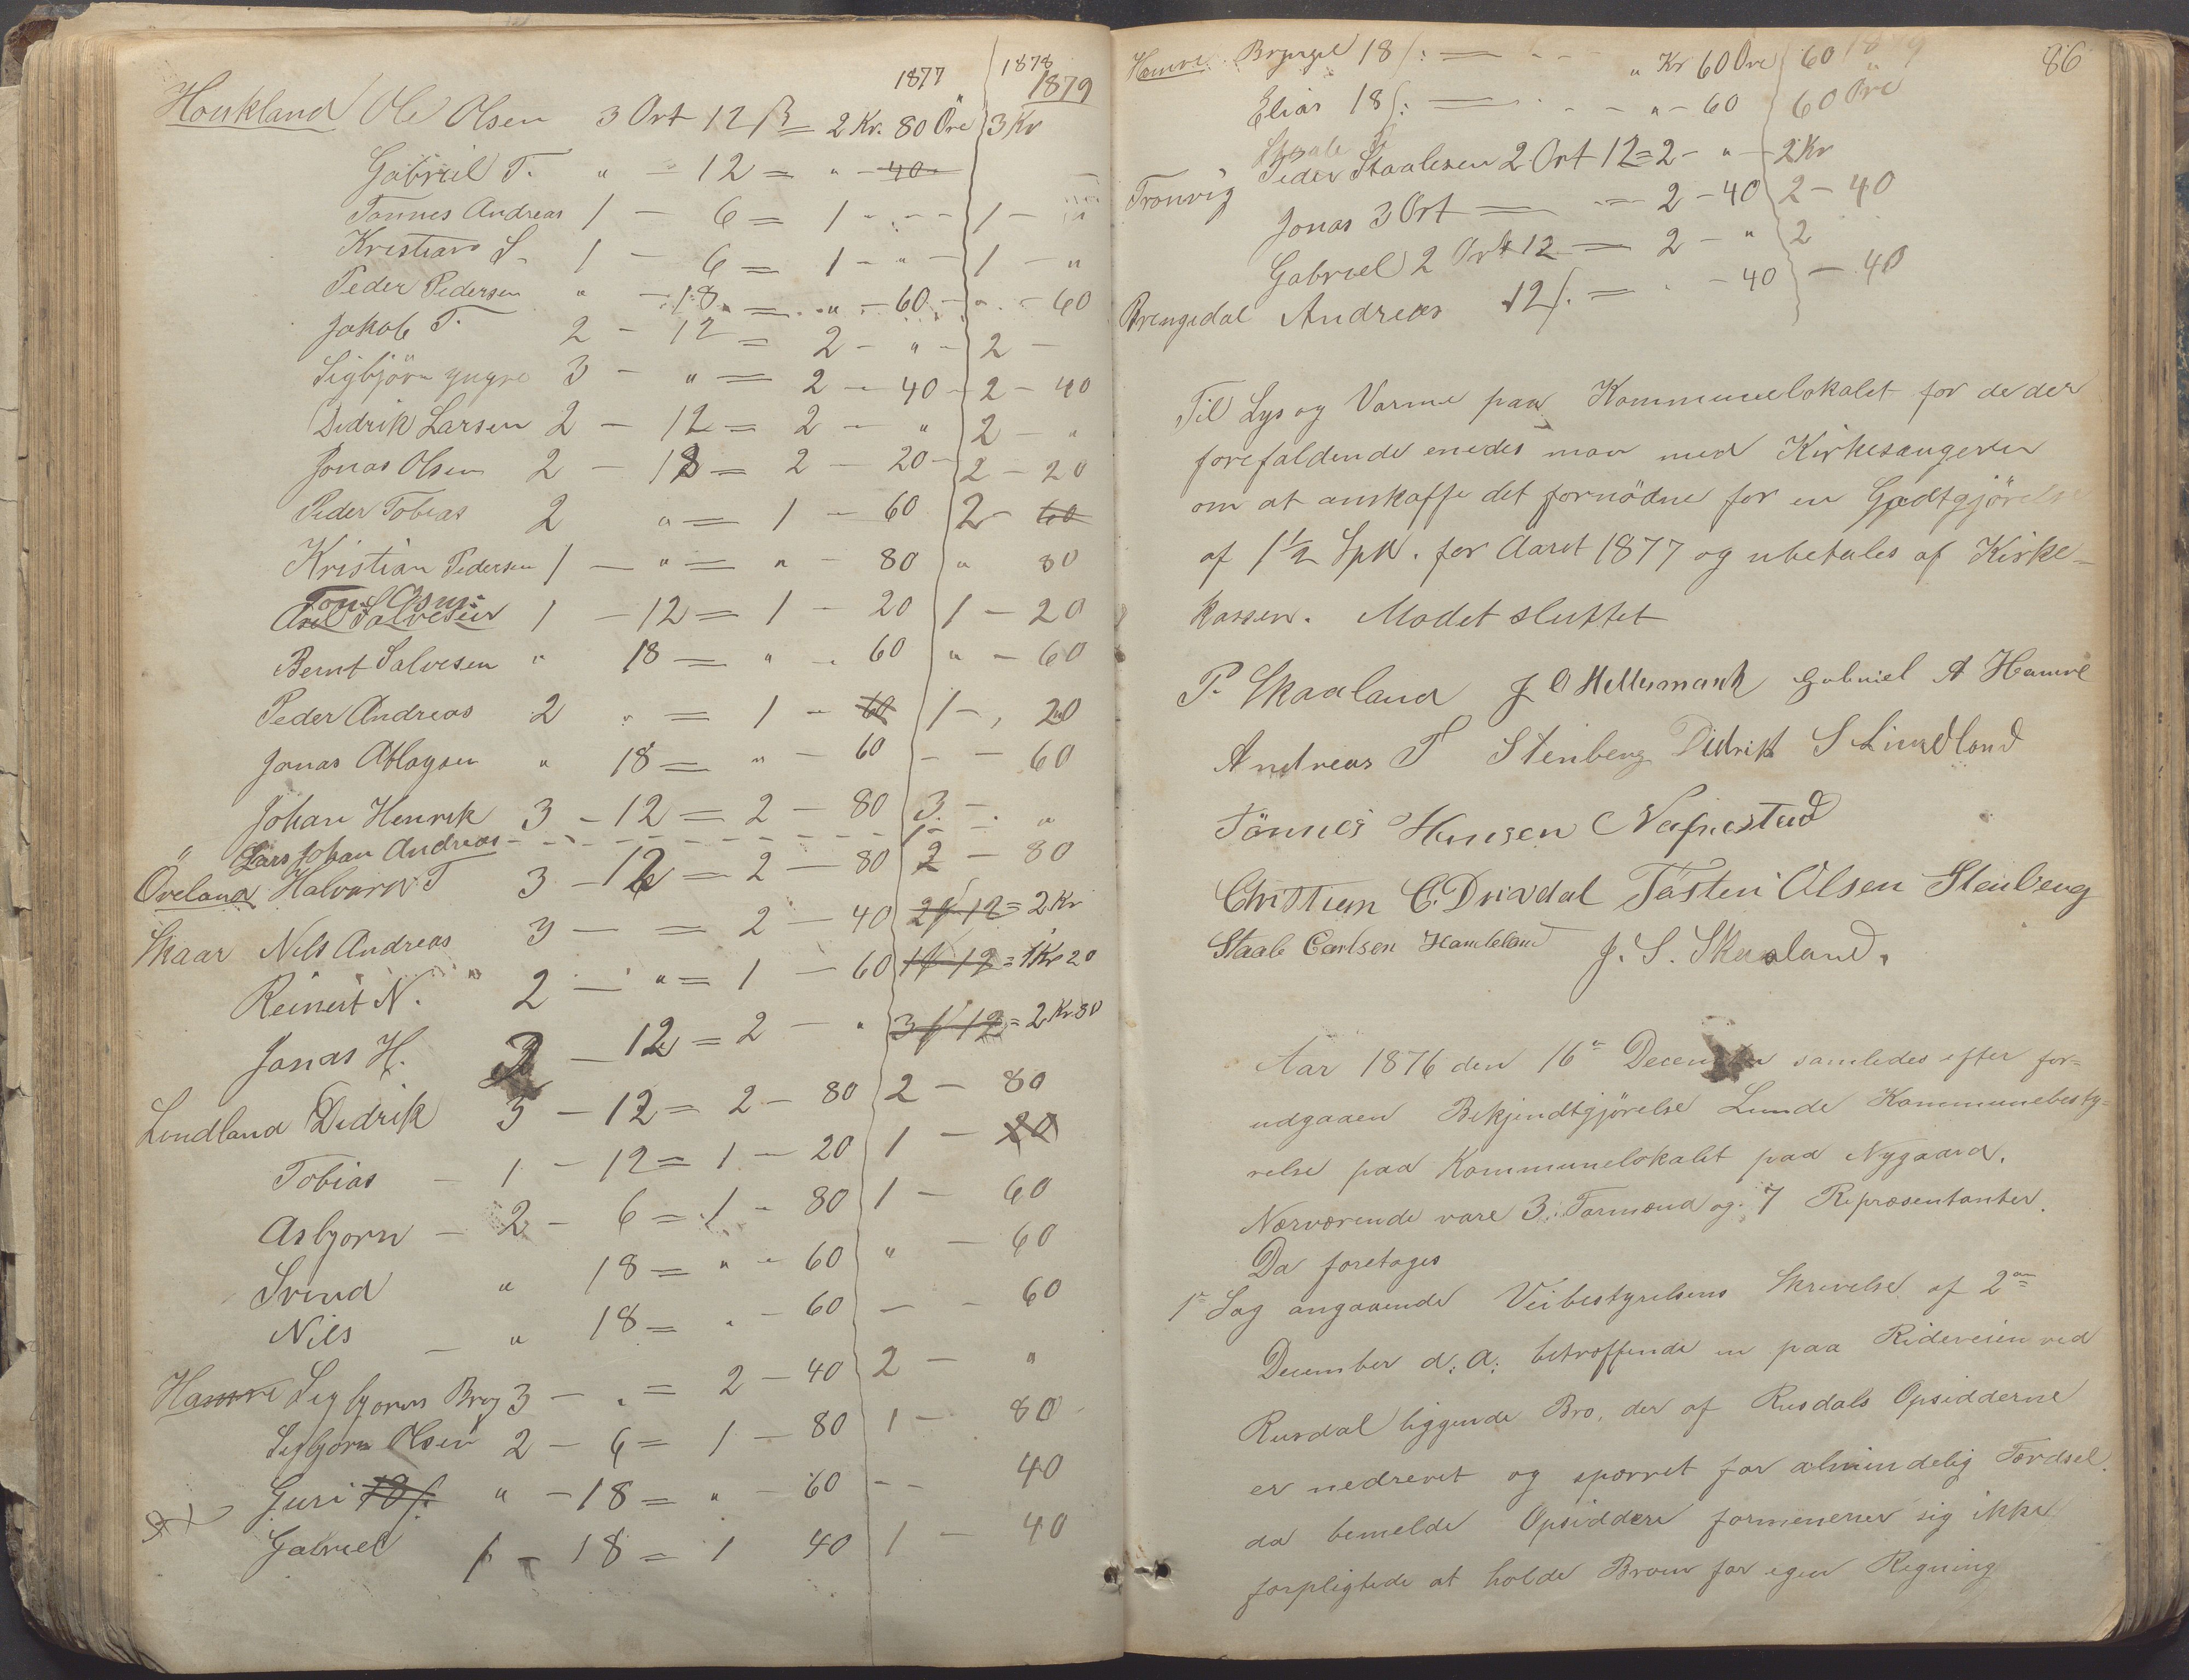 1877 " 1878
1879
Houkland Ole Olsen 3 Ort 12 ß = 2 Kr. 80 Öre 3 Kr
Gabriel T. " - 12 = " - 40
Tønnes Andreas 1 - 6 = 1 - " - 1 -
Kristian S. 1 - 6 = 1 - " - 1 - "
Peder Pedersen " - 18 = " - 60 - " - 60
Jakob T. 2 - 12 = 2 - " - 2 -
Sigbjörn yngre 3 - " = 2 - 40 - 2 - 40
Didrik Larsen 2 - 12 = 2 - " 2 - "
Jonas Olsen 2 - 18 = 2 - 20 - 2 - 20
Peder Tobias 2 " = 1 - 60 2 - 60
Kristian Pedersen 1 - " = " - 80 " 80
Salvesen 1 - 12 = 1 - 20 1 - 20
Bernt Salvesen " 18 = " - 60 " - 60
Peder Andreas 2 " = 1 - 60 1 - , 20
Jonas Atlagsen " 18 = " - 60 - - 60
Johan Henrik 3 - 12 = 2 - 80 3 - "
" Lars Johan Andreas - - - - - - - - 1 -
Öveland Halvard T 3 - 12 = 2 - 80 2 - 80
Skaar Nils Andreas 3 - = 2 - 40 2 / 12 = 2 Kr
Reinert N. " 2 - " = 1 - 60 1 / 12 = 1 Kr 20
Jonas H. 3 - 12 = 2 - " 3 / 12 = 2 Kr 80
Lindland Didrik 3 - 12 = 2 - 80 2 - 80
Tobias - 1 - 12 = 1 - 20 1 - 20
Asbjorn - 2 - 6 = 1 - 80 1 - 60
Svend " 18 = " - 60 " - 60
Nils - " 18 = " - 60 - - 60
Hamre Sigbjorn Bryg 3 - " = 2 - 40 2 - "
Sigbjorn Olsen 2 - 6 = 1 - 80 1 - 80
Guri 18 ß. " - 18 = " - 60 - - 40
Gabriel 1 - 18 = 1 40 1 - 40
86
Hamre Bryngel 18 ß: = - - " Kr 60 Öre 60
Elias 18 ß: = - - " - 60 60 Öre
Tronvig Peder Staalesen 2 Ort 12 = 2 - " - 2 Kr
Jonas 3 Ort = - - 2 - 40 2 - 40
Gabriel 2 Ort 12 = 2 - " 2
Brengedal Andreas 12 ß. = " - 40 - 40
Til Lys og Varme paa Kommunelokalet for de der
forefaldende enedes man med Kirkesangeren
om at anskaffe det fornödne for en Godtgjörelse
af 1 ½ Spd. for Aaret 1877 og ubetales af Kirke-
kassen. Mødet sluttet
P. Skaaland J O Mellemstrand Gabriel A Hamre
Andreas T Stenberg Didrik S Lindland
Tönnes Hansen Nefnestad
Christian C. Drivdal Tösten Olsen Stenberg
Staale Carlsen Haukeland J. S. Skaaland.
Aar 1876 den 16de December samledes efter for-
udgaaen Bekjendtgjörelse Lunde Kommunebesty-
relse paa Kommunelokalet paa Nygaard.
Nærværende vare 3 Formænd og 7 Repræsentanter.
Da foretoges
1. Sag angaaende Veibestyrelsens Skrivelse af 2den
December d: A: betræffende en paa Rideveien ved
Rusdal liggende Bro, der af Rusdals Opsidderne
er nedrevet og sparret for almindelig Færdsel,
da bemeldte Opsiddere formenener sig ikke
forpligtede at holde Broen for egen Regning